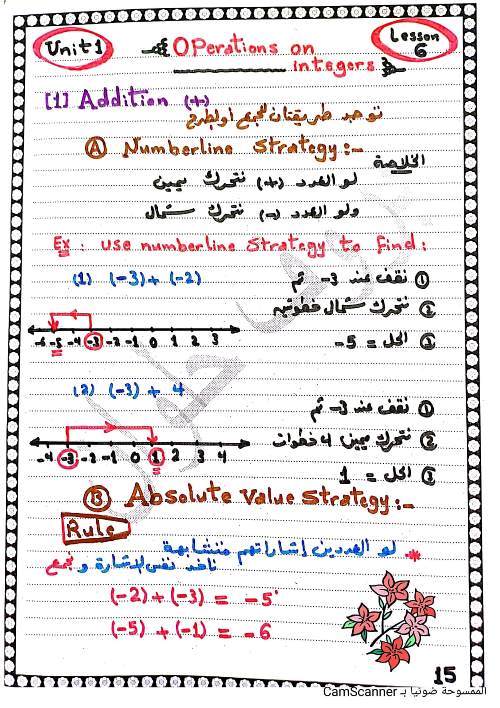 Unit 1
Operations on
integers
Lesson
6
[1] Addition (+)
توجد طريقتان للجمع او الطرح
(A) Numberline Strategy:-
الخلاصة
لو العدد (+) نتحرك يمين
ولو العدد (-) نتحرك شمال
Ex: use numberline strategy to find:
(1) (-3)+(-2)
① نقف عند 3- ثم
② نتحرك شمال خطوتين
③ الحل = 5-
-6 -5 -4 -3 -2 -1 0 1 2 3
(2) (-3) + 4
① نقف عند 3- ثم
② نتحرك يمين 4 خطوات
③ الحل = 1
-4 -3 -2 -1 0 1 2 3 4
(B) Absolute Value Strategy:-
Rule
* لو العددين إشاراتهم متشابهة
ناخد نفس الاشارة و نجمع
(-2)+(-3) = -5
(-5)+(-1) = -6
15
الممسوحة ضوئيا بـ CamScanner